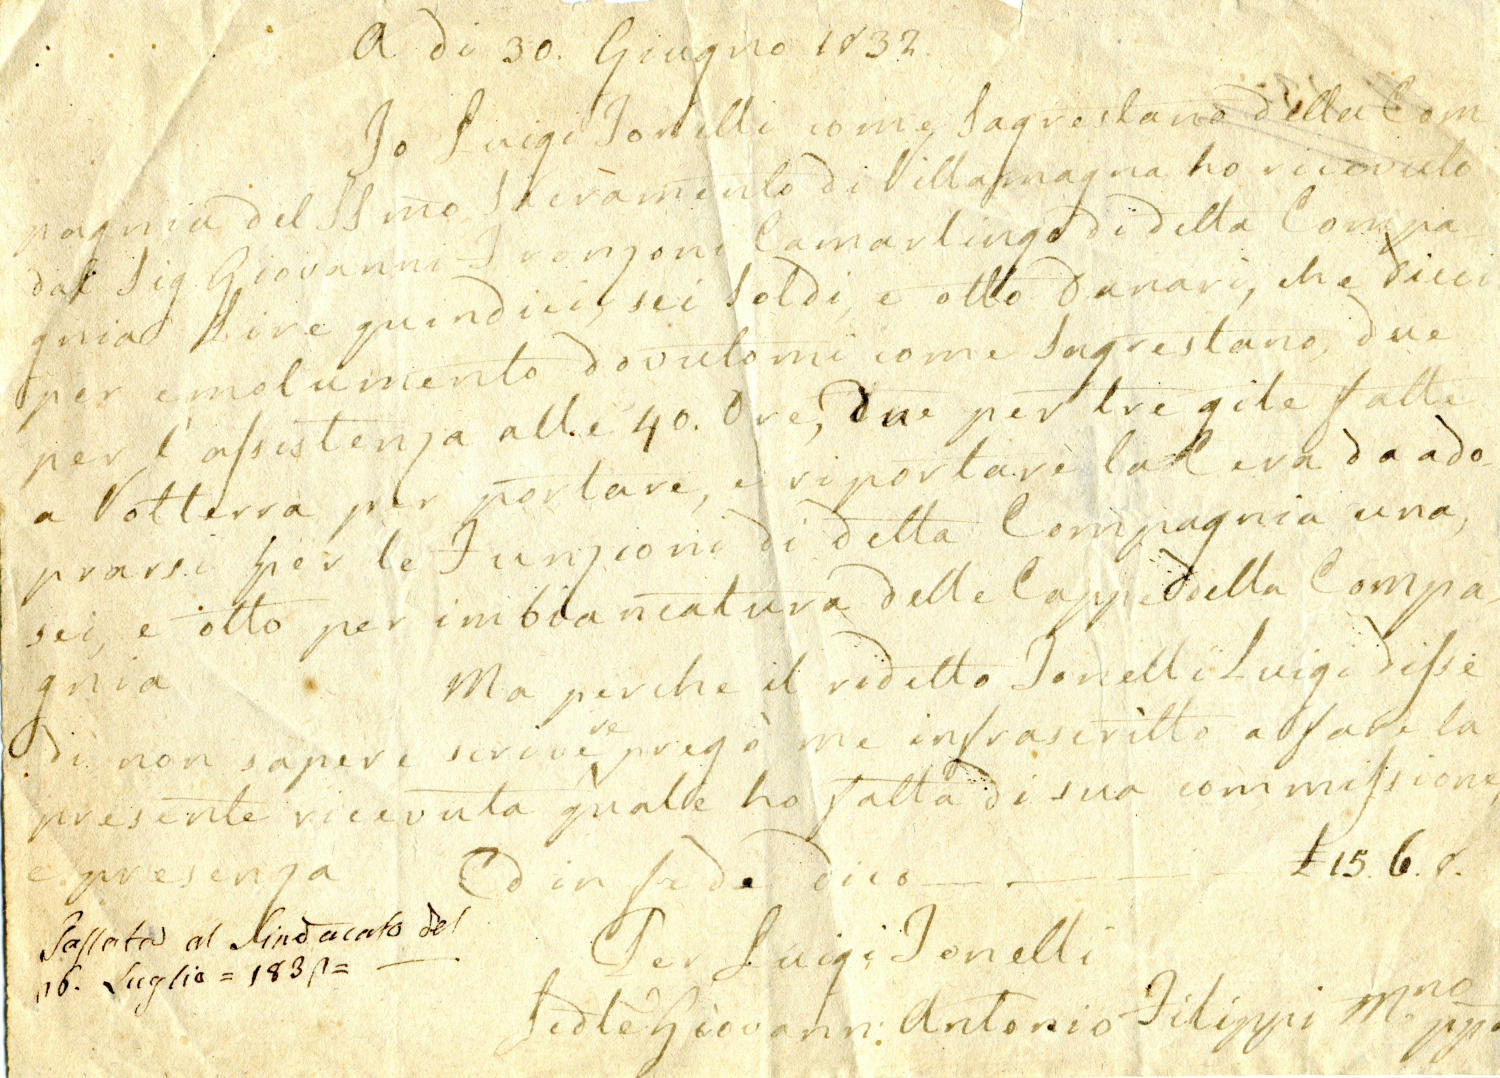 A di 30. Giugno 1832.
Io Luigi Tonelli come Sagrestano della Com
pagnia del SSmo Sacramento di Villamagna ho ricevuto
dal Sig Giovanni Tronzoni Camarlingo di detta Compa
gnia Lire quindici, sei Soldi, e otto Danari, che dieci
per emolumento dovutomi come Sagrestano, due
per l'assistenza alle 40. Ore, due per tre gite fatte
a Volterra per portare, e riportare la Cera da ado-
prarsi per le Funzioni di detta Compagnia una,
sei, e otto per imbiancatura delle Cappe della Compa
gnia Ma perche il redetto Tonelli Luigi disse
di non sapere scrivere pregò me infrascritto a fare la
presente ricevuta quale ho fatta di sua commissione,
e presenza Ed in fede dico £ 15. 6. 8.
Per Luigi Tonelli
Giovann: Antonio Filippi Mno pp
Passata al Sindacato del
16. Luglio =